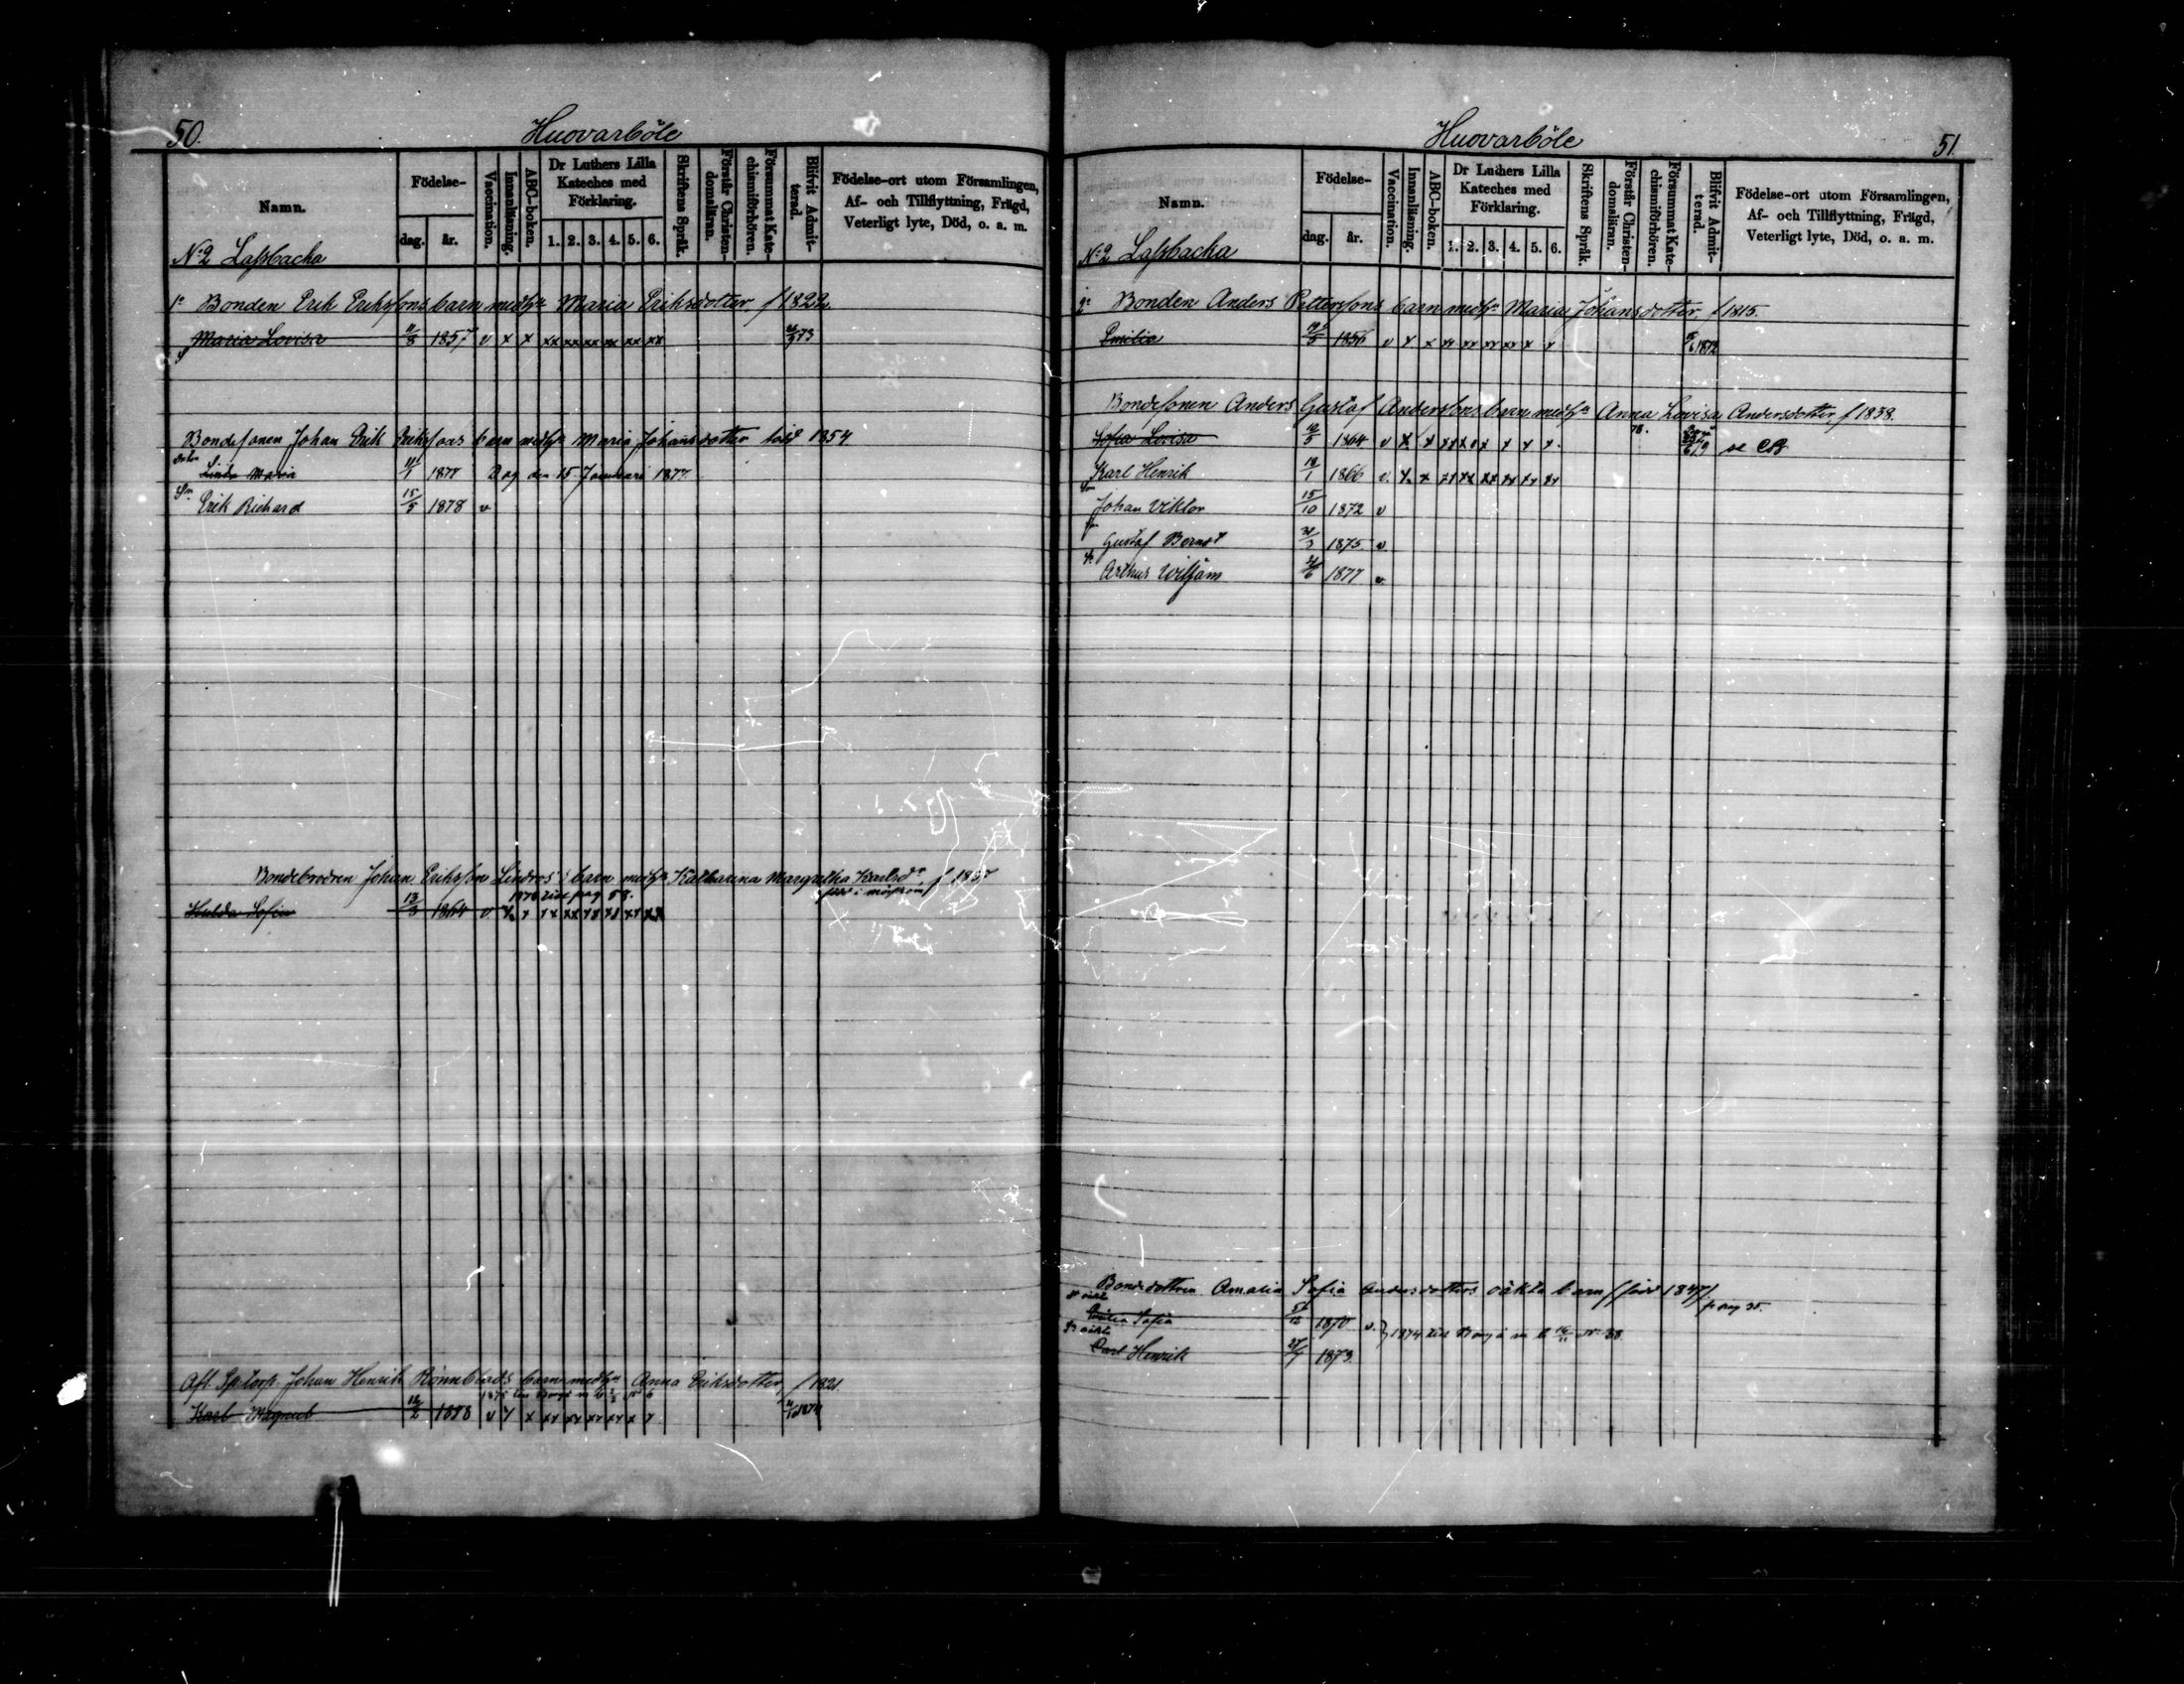 50.
Huovarböle
Namn.
Födelse-
dag.
år.
Vaccination.
Innanläsning.
ABC-boken.
Dr Luthers Lilla
Kateches med
Förklaring.
1. 2. 3. 4. 5. 6.
Skriftens Språk.
Förstår Christen-
domsläran.
Försummat Kate-
chismiförhören.
Blifvit Admit-
terad.
Födelse-ort utom Församlingen,
Af- och Tillflyttning, Frägd,
Veterligt lyte, Död, o. a. m.
No 2 Lassbacka
1o Bonden Erik Erikssons barn med h. Maria Eriksdotter f 1822.
Maria Lovisa 11/8 1857 v x x xx xx xx xx xx xx 73
Bondesonen Johan Erik Erikssons barn med h. Maria Johansdotter född 1854
Linda Maria 1877 Dog den 15 Januari 1877.
Erik Richard 15/5 1878 v
Bondebrodren Johan Eriksson Lindros's barn med h. Katharina Margretha Karlsdr f
1878 pag 58.
Hulda Sofia 13/3 1864 v x x xx xx xx xx xx xx
Johan Henrik Rönnblads barn med h. Anna Eriksdotter, f 1821
Karl Magnus 12/2 v x x xx xx xx xx x x
Huovarböle
51.
Namn.
Födelse-
dag.
år.
Vaccination.
Innanläsning.
ABC-boken.
Dr Luthers Lilla
Kateches med
Förklaring.
1. 2. 3. 4. 5. 6.
Skriftens Språk.
Förstår Christen-
domsläran.
Försummat Kate-
chismiförhören.
Blifvit Admit-
terad.
Födelse-ort utom Församlingen,
Af- och Tillflyttning, Frägd,
Veterligt lyte, Död, o. a. m.
No 2 Lassbacka
2o Bonden Anders Petterssons barn med h. Maria Johansdotter, f 1815.
Emilia 1856 v x x xx xx xx xx x x 1872
Bondesonen Anders Gustaf Anderssons barn med h. Anna Lovisa Andersdotter, f 1838.
Sofia Lovisa 1864 v x x 78. se CB
Karl Henrik 1866 v. x x xx xx xx xx xx xx
Johan Viktor 15/10 1872 v
Gustaf Bernd 1875. v
Arthur Wiljam 1877 v.
Bondedottren Amalia Sofia Andersdotters oäkta barn /född 1847/
Sofia 1870 v.
Carl Henrik 1873.